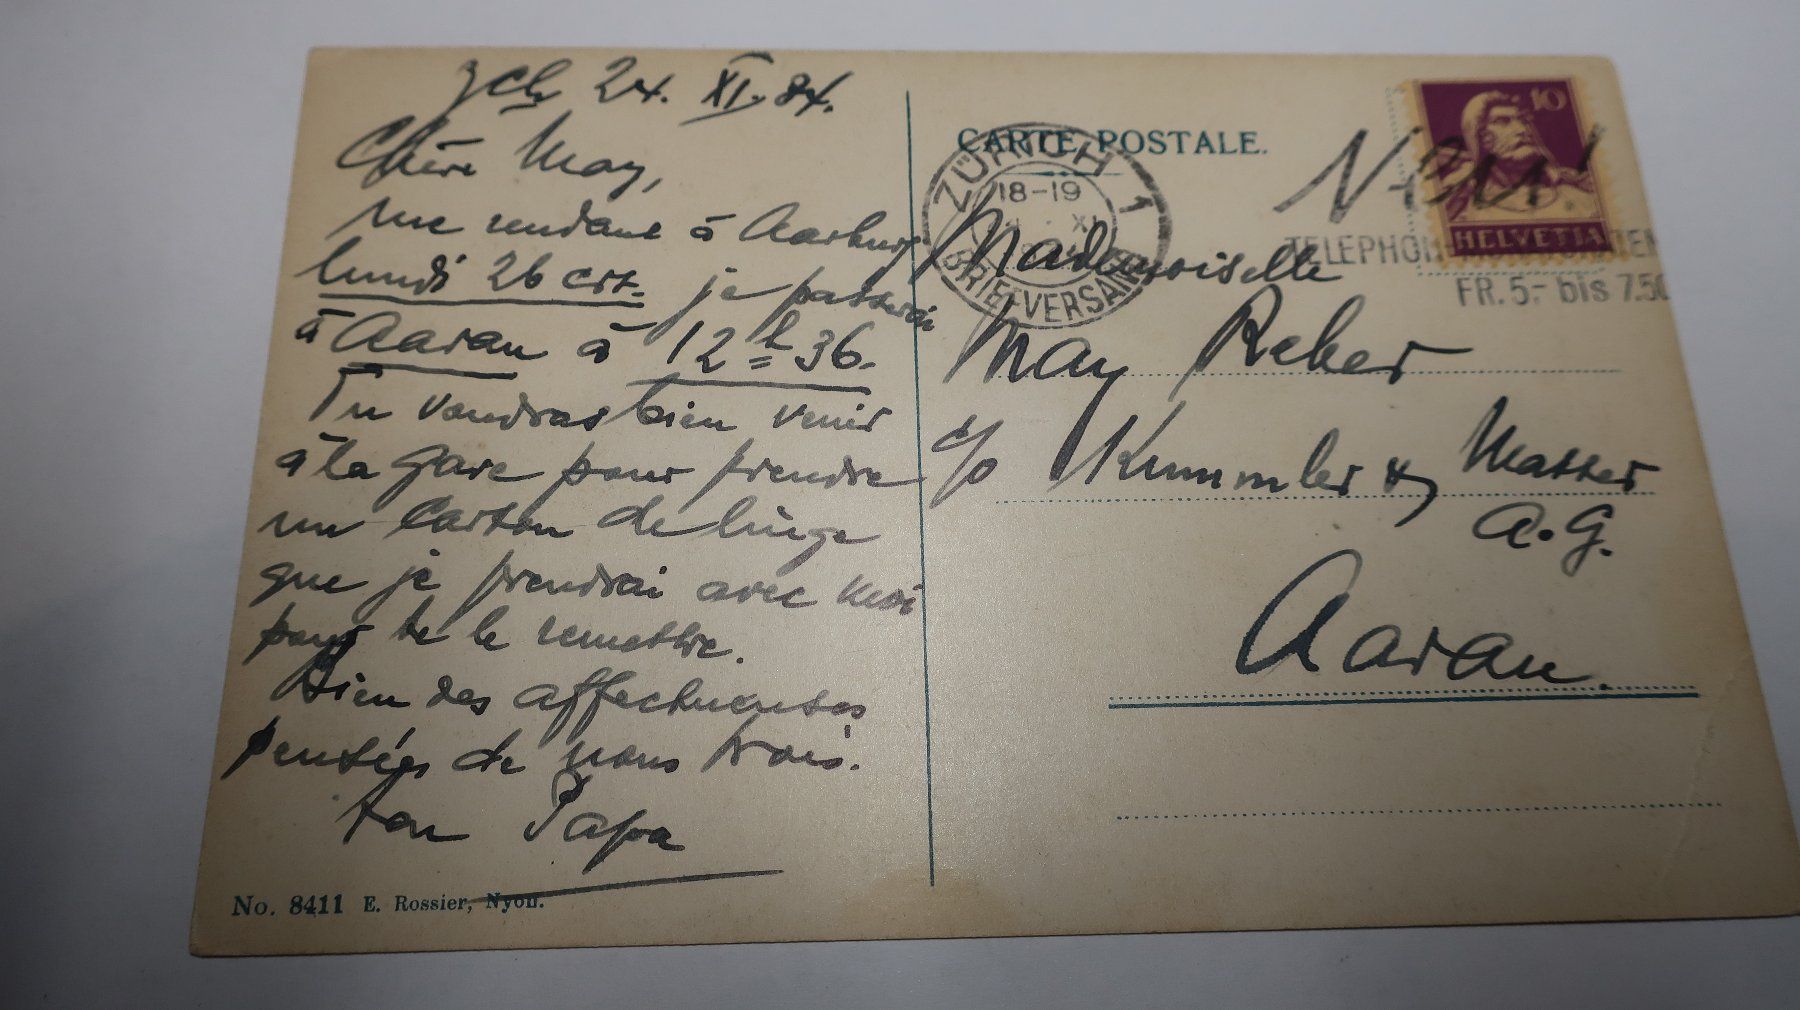 Zch 24. XI. 34.
Chère May,
me rendant à Aarburg
lundi 26 crt. je passerai
à Aarau à 12 h 36.
Tu voudras bien venir
à la gare pour prendre
un carton de linge
que je prendrai avec moi
pour te le remettre.
Bien des affectueuses
pensées de nous trois.
ton Papa
No. 8411 E. Rossier, Nyon.
CARTE POSTALE.
ZÜRICH 1
18-19
XI
BRIEFVERSAND
10
HELVETIA
TELEPHON
FR. 5.- bis 7.50
Mademoiselle
May Reber
c/o Kummler & Matter
A.G.
Aarau.